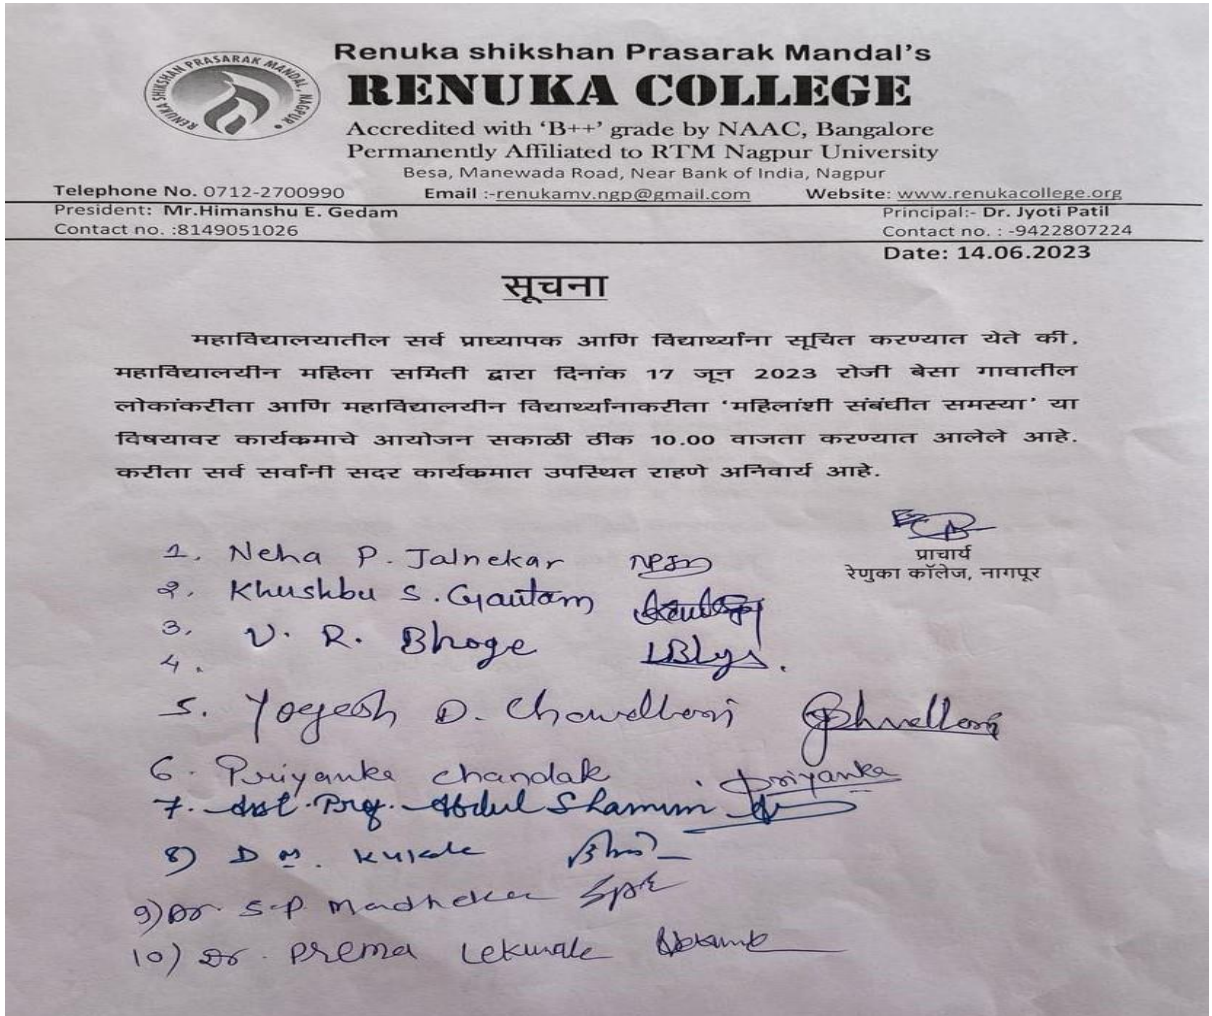 RENUKA SHIKSHAN PRASARAK MANDAL, NAGPUR.
Renuka shikshan Prasarak Mandal's
RENUKA COLLEGE
Accredited with 'B++' grade by NAAC, Bangalore
Permanently Affiliated to RTM Nagpur University
Besa, Manewada Road, Near Bank of India, Nagpur
Telephone No. 0712-2700990 Email :-renukamv.ngp@gmail.com Website: www.renukacollege.org
President: Mr.Himanshu E. Gedam Principal:- Dr. Jyoti Patil
Contact no. :8149051026 Contact no. : -9422807224
Date: 14.06.2023
सूचना
महाविद्यालयातील सर्व प्राध्यापक आणि विद्यार्थ्यांना सूचित करण्यात येते की,
महाविद्यालयीन महिला समिती द्वारा दिनांक 17 जून 2023 रोजी बेसा गावातील
लोकांकरीता आणि महाविद्यालयीन विद्यार्थ्यांनाकरीता 'महिलांशी संबंधीत समस्या' या
विषयावर कार्यक्रमाचे आयोजन सकाळी ठीक 10.00 वाजता करण्यात आलेले आहे.
करीता सर्व सर्वांनी सदर कार्यक्रमात उपस्थित राहणे अनिवार्य आहे.
प्राचार्य
रेणुका कॉलेज, नागपूर
1. Neha P. Jalnekar NPJ
2. Khushbu S. Gautam
3. V. R. Bhoge
4.
5. Yogesh D. Chowdhari
6. Priyanka Chandak Priyanka
7. Asst. Prof. Abdul Shamim
8) D M.
9) Dr. S.P. Madhekar
10) Dr. Prema Lekurwale